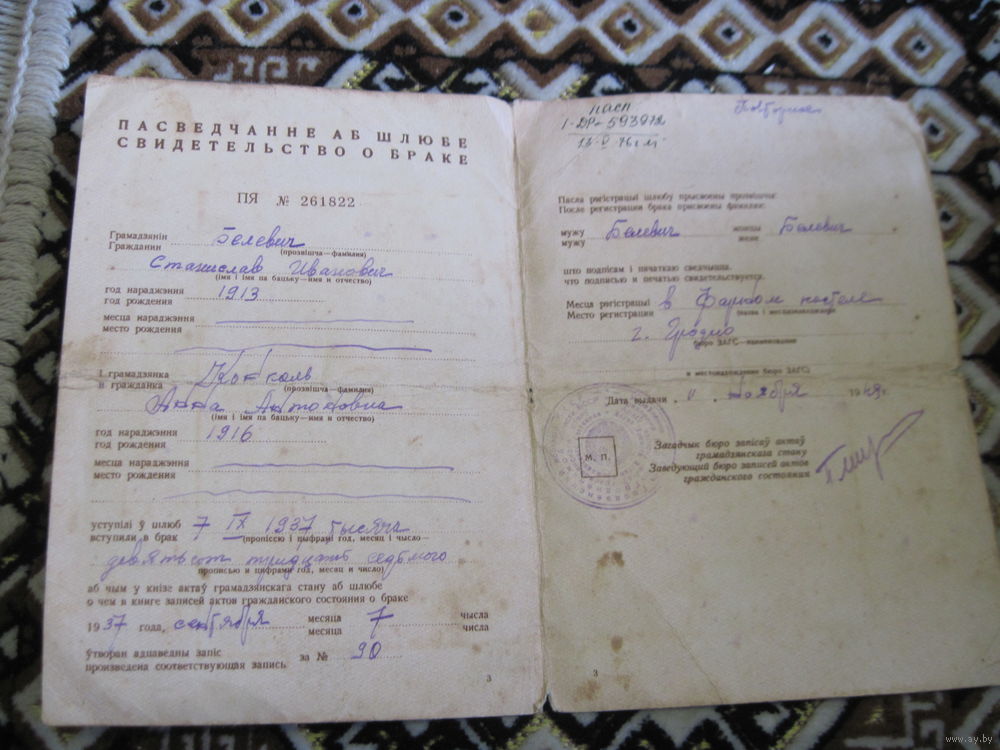 ПАСВЕДЧАННЕ АБ ШЛЮБЕ
СВИДЕТЕЛЬСТВО О БРАКЕ
ПЯ № 261822
Грамадзянін
Гражданин
Белевич
(прозвішча—фамилия)
Станислав Иванович
(імя і імя па бацьку—имя и отчество)
год нараджэння
год рождения
1913
месца нараджэння
место рождения
і грамадзянка
и гражданка
(прозвішча—фамилия)
Анна Антоновна
(імя і імя па бацьку—имя и отчество)
год нараджэння
год рождения
1916
месца нараджэння
место рождения
уступілі ў шлюб
вступили в брак
7 IX 1937 тысяча
(пропіссю і цыфрамі год, месяц і чысло—
девятьсот тридцать седьмого
прописью и цифрами год, месяц и число)
аб чым у кнізе актаў грамадзянскага стану аб шлюбе
о чем в книге записей актов гражданского состояния о браке
1937 года, сентября месяца 7 чысла
месяца числа
ўтворан адпаведны запіс
произведена соответствующая запись
за № 90
3
пасп
I-ДР-593972
13-V 76г м
Повторное
Пасля рэгістрацыі шлюбу прысвоены прозвішчы:
После регистрации брака присвоены фамилии:
мужу Белевич жонцы Белевич
мужу жене
што подпісам і пячаткаю сведчыцца.
что подписью и печатью свидетельствуется.
Месца рэгістрацыі
Место регистрации
в Фарном костеле
(назва і месцазнаходжанне
г. Гродно
бюро ЗАГС—наименование
и местонахождение бюро ЗАГС)
Дата выдачи " ноября 1949г.
М. П.
Загадчык бюро запісаў актаў
грамадзянскага стану
Заведующий бюро записей актов
гражданского состояния
3
www.ay.by